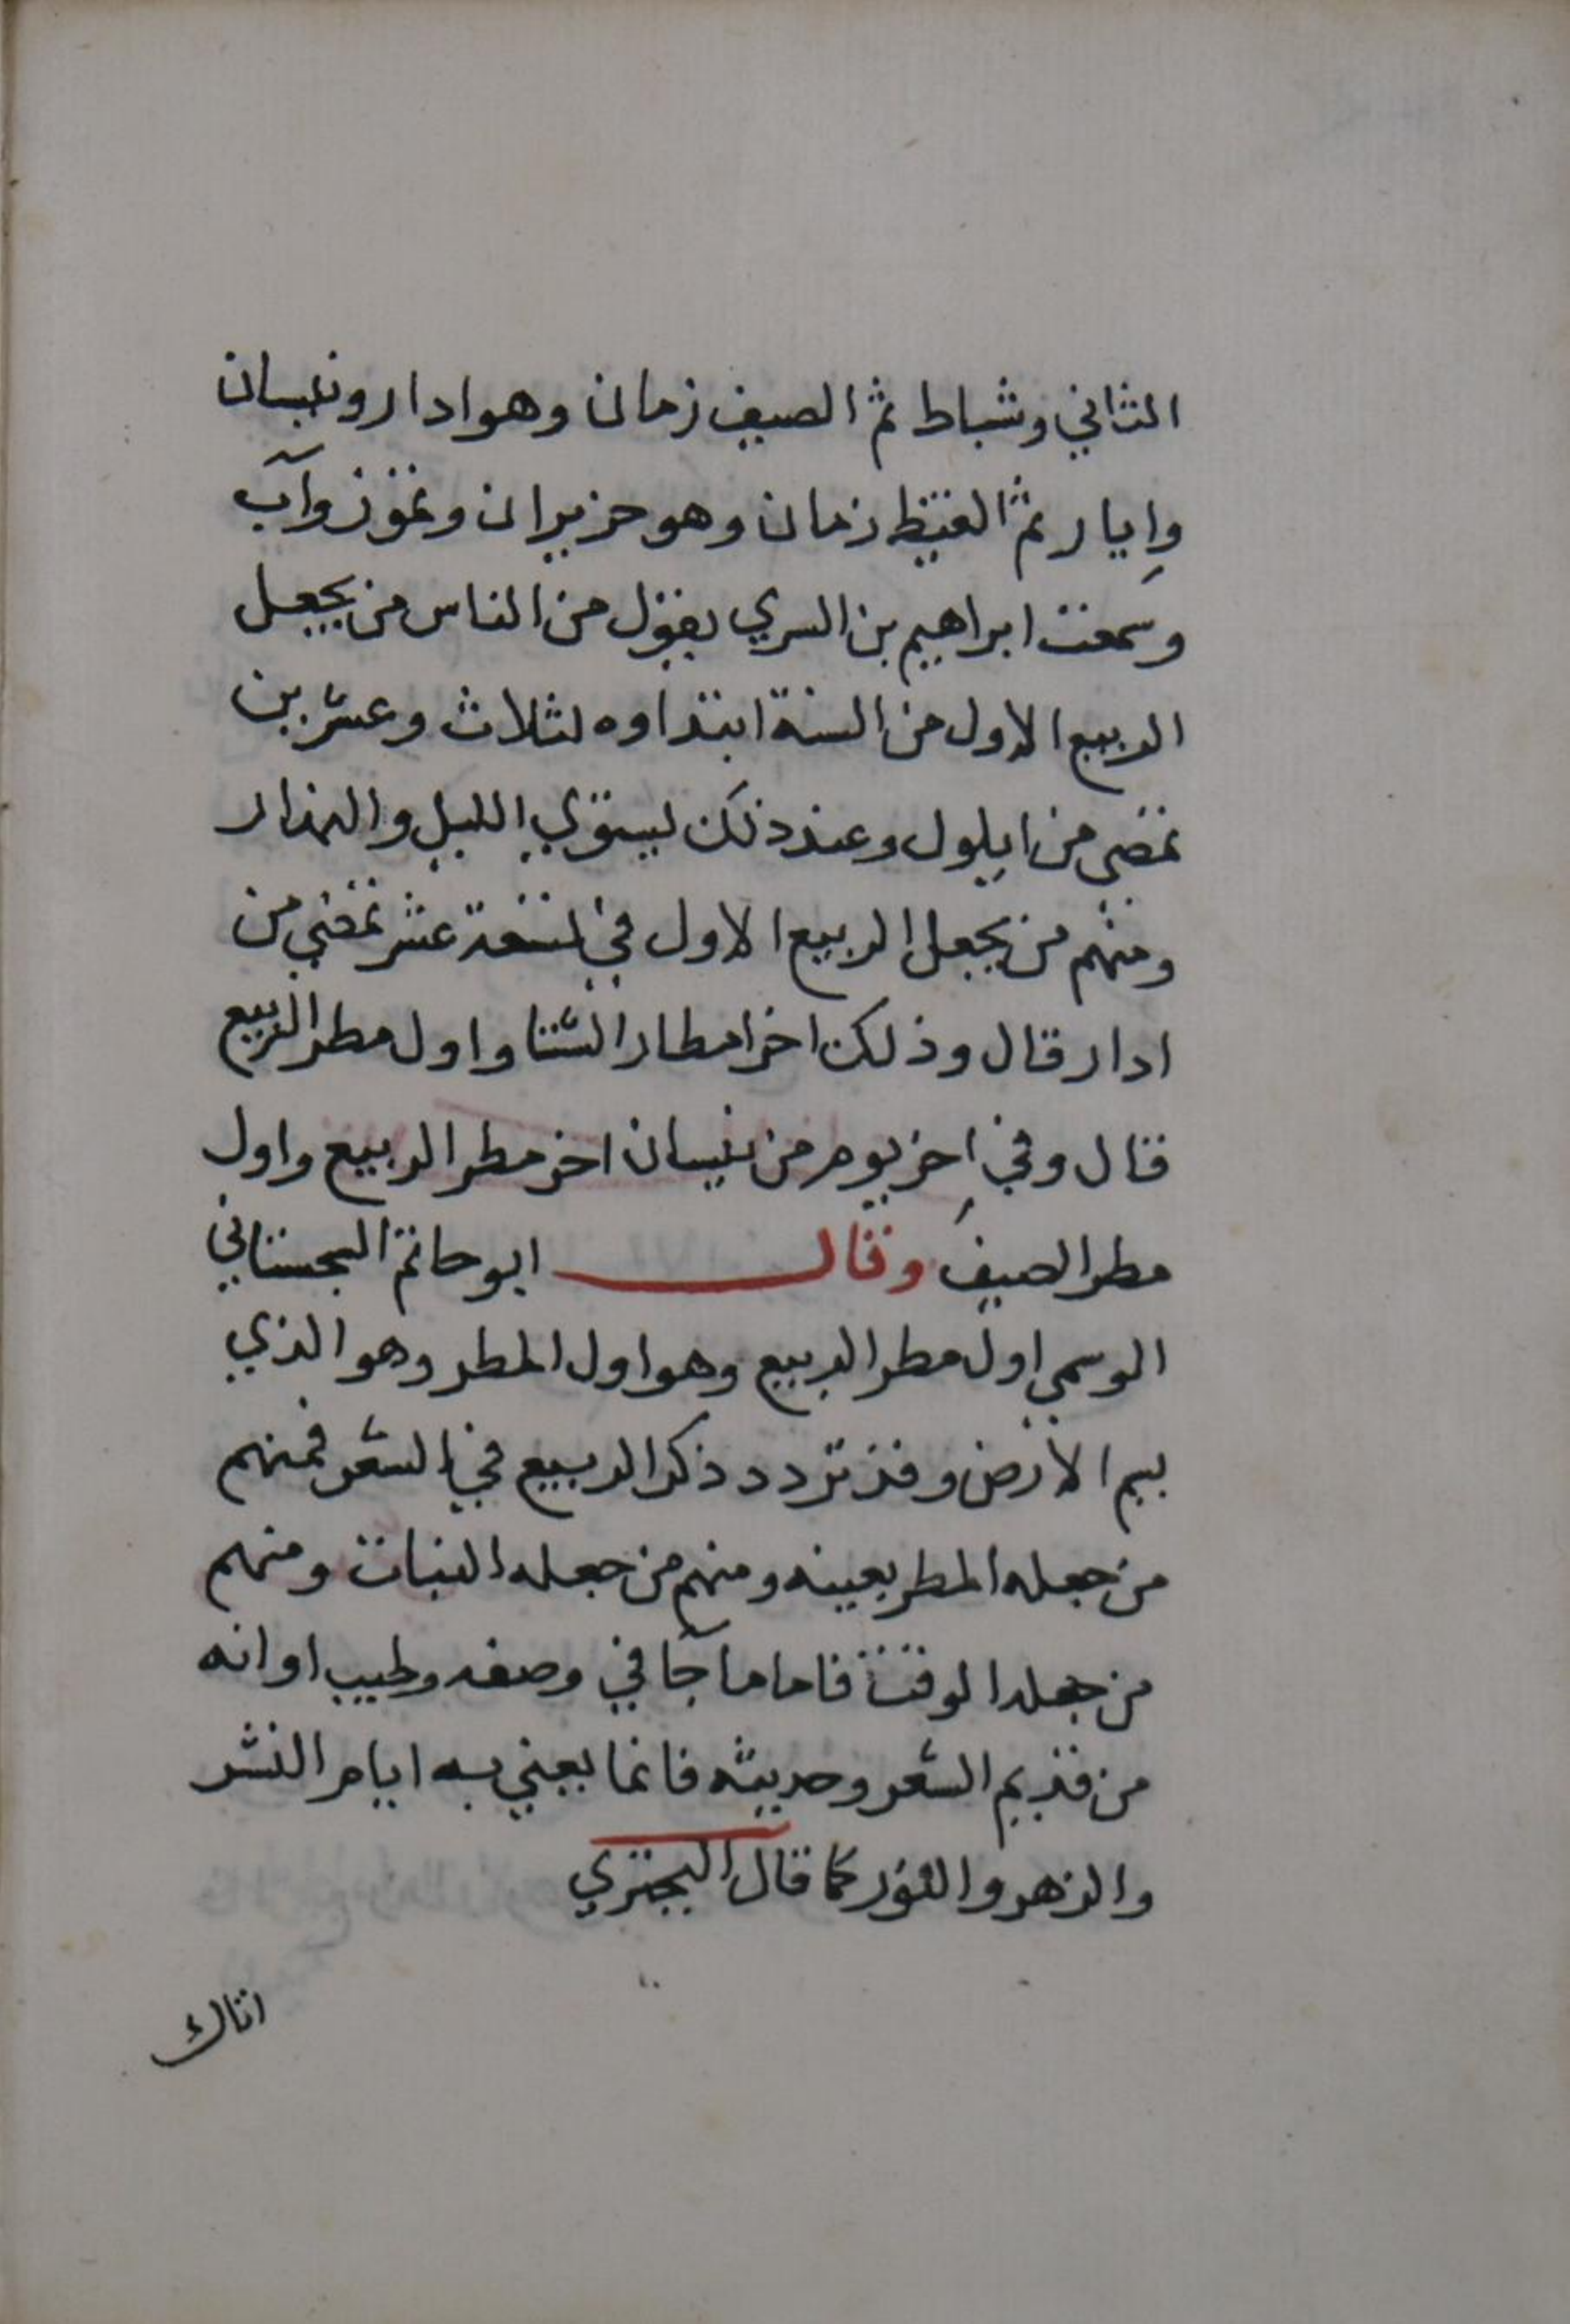 الثاني وشباط ثم الصيف زمان وهو ادار ونيسان
وإيار ثم القيظ زمان وهو حزيران وتموز وآب
وسمعت ابراهيم بن السري يقول من الناس من يجعل
الربيع الاول من السنة ابتداوه لثلاث وعشرين
تمضي من ايلول وعند ذلك يستوي الليل والنهار
ومنهم من يجعل الربيع الاول في تسعة عشر تمضي من
ادار قال وذلك اخر امطار الشتا واول مطر الربيع
قال وفي اخر يوم من نيسان اخر مطر الربيع واول
مطر الصيف وقال ابو حاتم السجستاني
الوسمي اول مطر الربيع وهو اول المطر وهو الذي
يسم الارض وقد تردد ذكر الربيع في الشعر فمنهم
من جعله المطر بعينه ومنهم من جعله النبات ومنهم
من جعله الوقت فاما ما جآ في وصفه وطيب اوانه
من قديم الشعر وحديثه فانما يعني به ايام النشر
والزهر والنور كما قال البحتري
اتاك